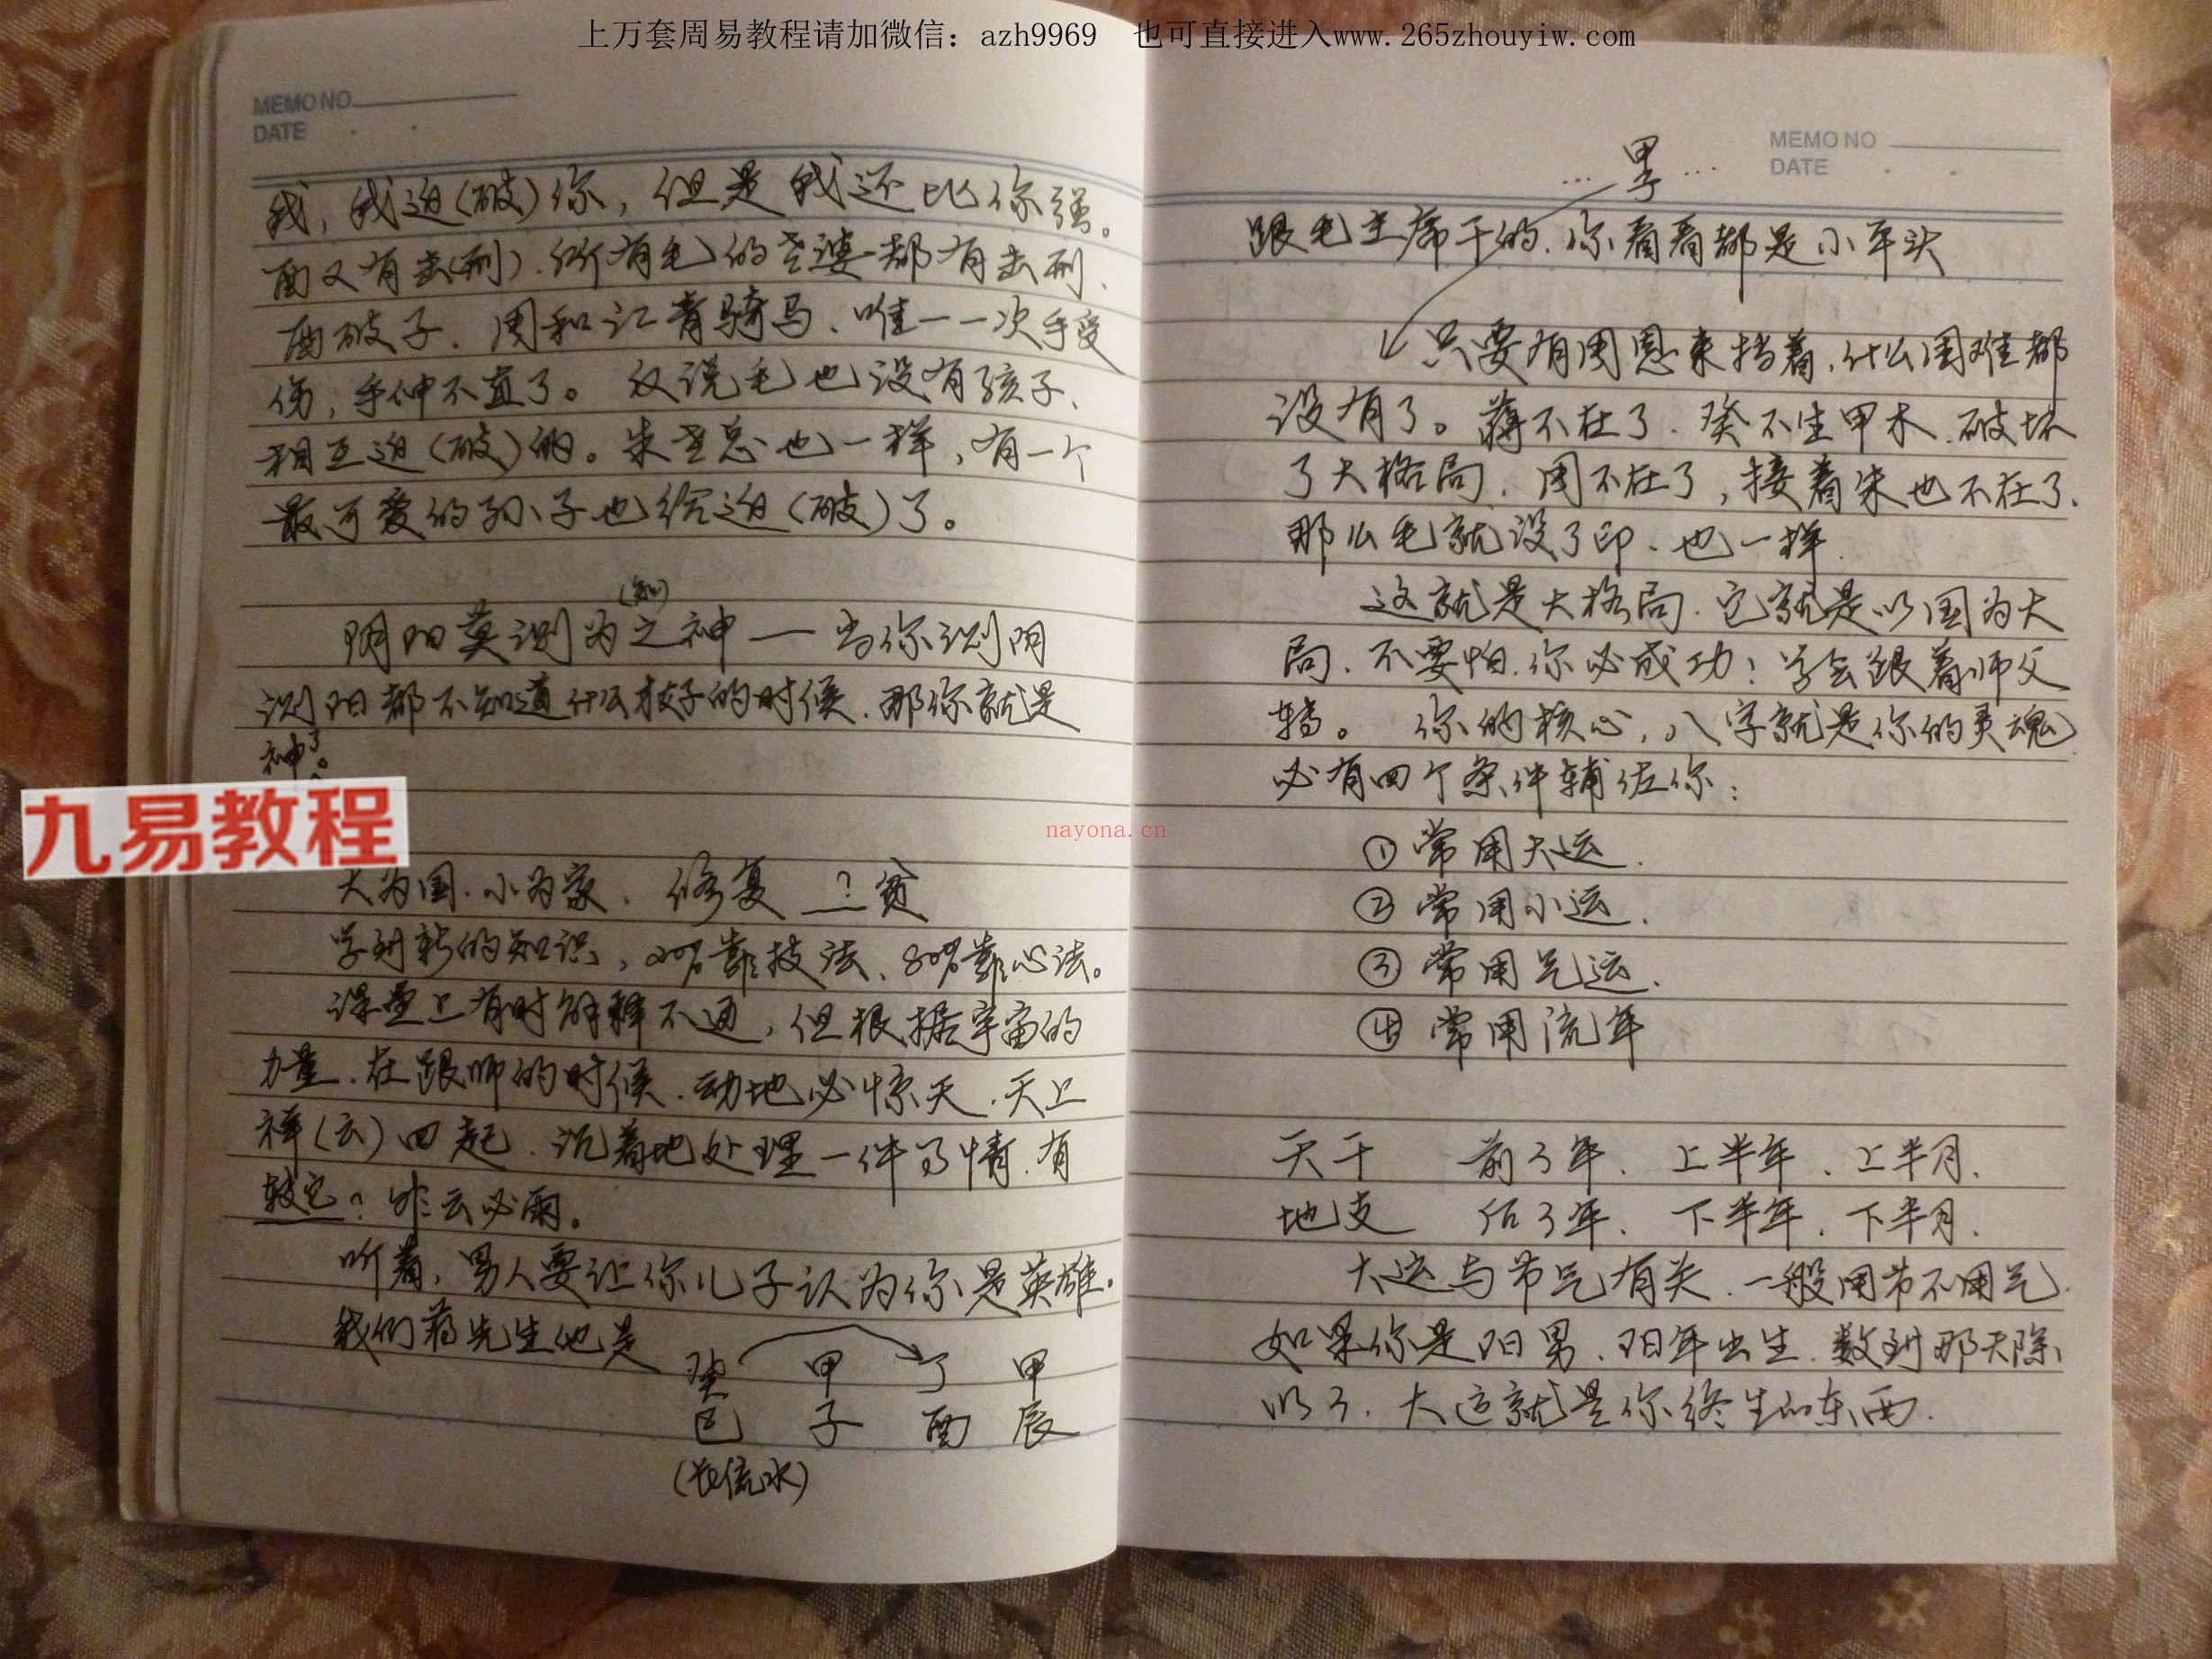 上万套周易教程请加微信：azh9969 也可直接进入www.265zhouyiw.com
MEMO NO
DATE
我，我迫(破)你，但是我还比你强。
酉又有击(刑)、所有毛的老婆都有击刑、
酉破子、周和江青骑马、唯一一次手受
伤，手伸不直了。 汉说毛也没有孩子、
相互迫(破)的。朱老总也一样，有一个
最可爱的孙子也给迫(破)了。
(知)
阴阳莫测为之神一当你测阴
测阳都不知道什么样子的时候、那你就是
神了。
九易教程
nayona.cn
大为国、小为家、修复 ？贫
学到新的知识，20%靠技法、80%靠心法。
课堂上有时解释不通，但根据宇宙的
力量、在跟师的时候、动地必惊天、天上
祥(云)四起、沉着地处理一件事情、有
较它？ 云必雨。
听着，男人要让你儿子认为你是英雄。
我们蒋先生他是
癸 甲 丁 甲
巳 子 酉 辰
(长流水)
MEMO NO
DATE
… 甲子 …
跟毛主席干的、你看看都是小平头
只要有周恩来挡着，什么困难都
没有了。蒋不在了、癸不生甲木、破坏
了大格局、周不在了，接着朱也不在了、
那么毛就没了印、也一样、
这就是大格局、它就是以国为大
局、不要怕、你必成功！学会跟着师父
转。 你的核心，八字就是你的灵魂
必有四个条件辅佐你：
① 常用大运、
② 常用小运、
③ 常用气运、
④ 常用流年
天干 前3年、上半年、上半月、
地支 后3年、下半年、下半月、
大运与节气有关、一般用节不用气、
如果你是阳男、阳年出生、数到那天除
以3、大运就是你终生的东西、